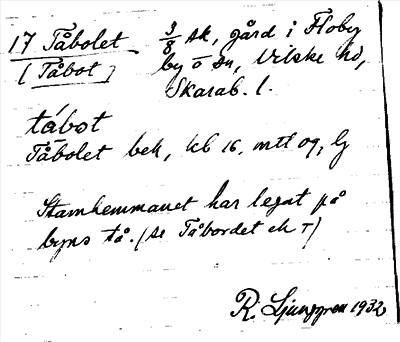 17 Tåbolet 3/8 sk, gård i Floby
[Tåbot] by o sn, Vilske hd,
Skarab. l.
tábot
Tåbolet bek, kb 16, mtl og, lj
Stamhemmanet har legat på
byns tå. (se Tåbordet ek T)
R. Ljunggren 1932